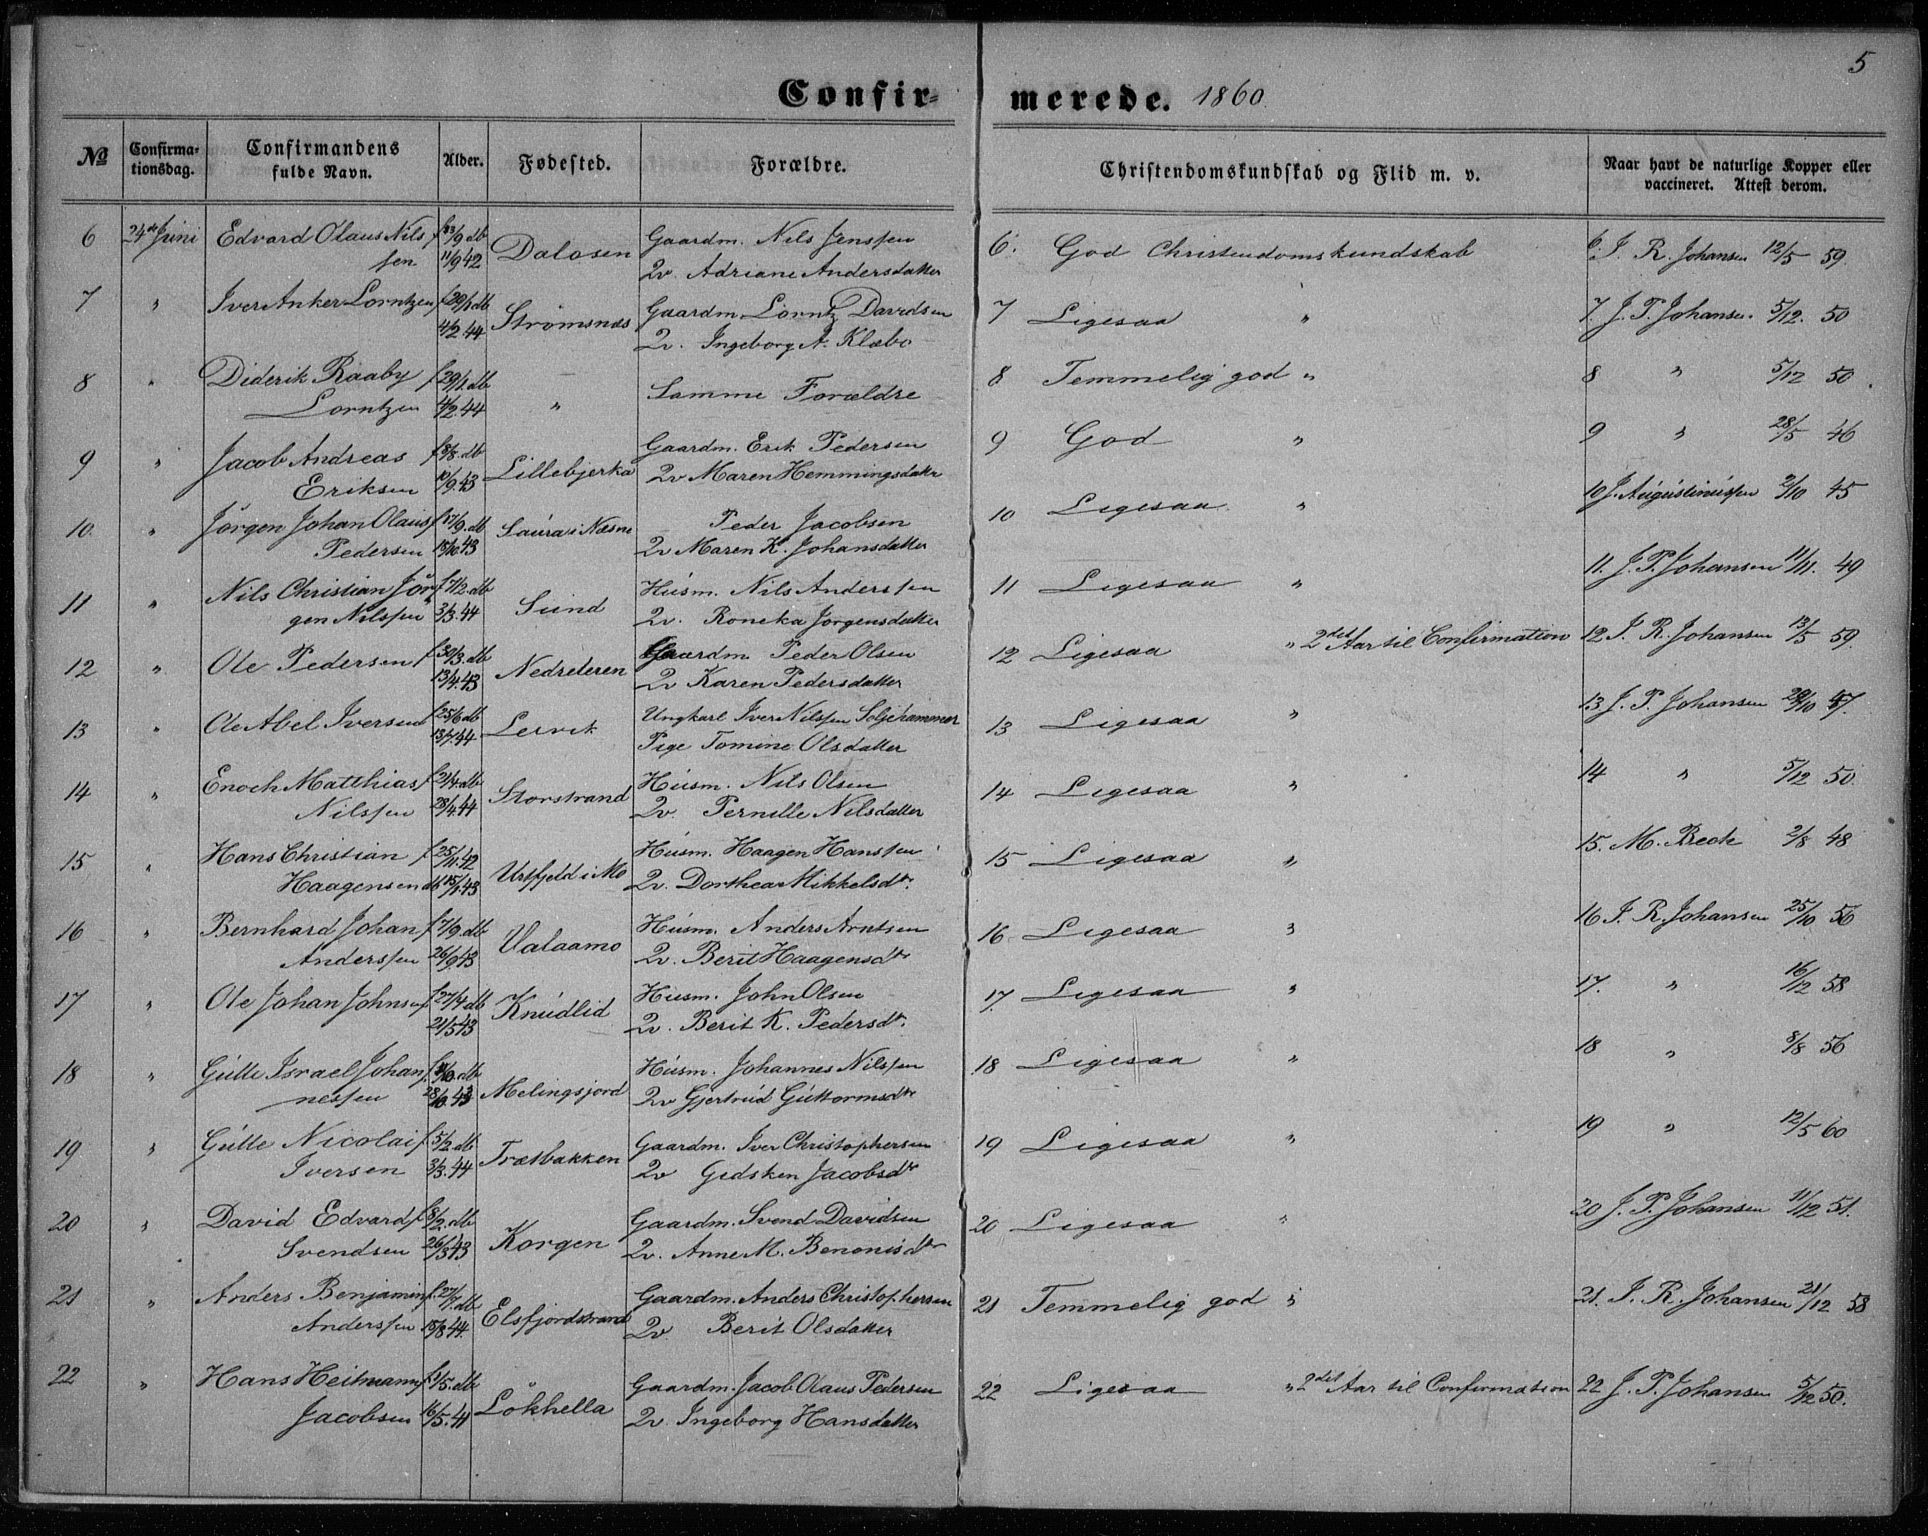 5
Confir- merede. 1860.
№ Confirmationsdag. Confirmandens fulde Navn. Alder. Fødested. Forældre. Christendomskundskab og Flid m. v. Naar havt de naturlige Kopper eller vaccineret. Attest derom.
6 24de Juni Edvard Olaus Nils f 3/9 db Dalosen Gaardm. Nils Jenssen 6. God Christendomskundskab 6. J. R. Johansen 12/5 59.
sen 11/9 42 Qv. Adriane Andersdatter
7 " Iver Anker Lorntzen f 29/1 db Strømsnæs Gaardm. Lorntz Davidsen 7 Ligesaa " 7. J. P. Johansen 5/12. 50
4/2.44 Qv. Ingeborg A. Klæbo
8 " Diderik Raaby f 29/1. db " Samme Forældre 8 Temmelig god " 8 " 5/12 50.
Lorntzen 4/2.44
9 " Jacob Andreas f 8/8. db Lillebjerka Gaardm. Erik Pedersen 9 God " 9 " 28/5 46
Eriksen 10/9.43 Qv Maren Hemmingsdatter
10. " Jørgen Johan Olaus f 17/9. db Saura i Næsne Peder Jacobsen 10 Ligesaa. " 10 J. Augustinussen 2/10 45
Pedersen 15/10 43 Qv Maren K. Johansdatter
11 " Nils Christian Jør f 7/2. db Sund Husm. Nils Anderssen 11 Ligesaa " 11. J. P. Johansen 11/11. 49
gen Nilssen 3/3.44 Qv. Ronika Jørgensdatter
12 " Ole Pedersen f 30/3. db Nedreleren Gaardm Peder Olsen 12 Ligesaa " 2det Aar til Confirmation 12 J. R. Johansen 13/5 59.
13/4.43 Qv Karen Pedersdatter
13 " Ole Abel Iversen f 25/6 db Lervik Ungkarl Iver Nilssen Seljehammer 13 Ligesaa " 13 J. P. Johansen 29/10 47.
13/7.44 Pige Tomine Olsdatter
14 " Enoch Matthias f 21/4 db Storstrand Husm. Nils Olsen 14 Ligesaa " 14 " 5/12 50.
Nilssen 28/4.44 Qv. Pernille Nilsdatter
15 " Hans Christian f 25/11.42 Ursfjeld i Mo Husm. Haagen Hanssen 15 Ligesaa " 15. M. Beck 2/8 48
Haagensen db 15/1.43 Qv. Dorthea Mikkelsdtr.
16 " Bernhard Johan f 7/9 db Valaamo Husm. Anders Arntsen 16 Ligesaa " 16 J. R. Johansen 25/10 56
Anderssen 26/9 43 Qv. Berit Haagensdtr
17 " Ole Johan Johnsen f 27/4 db Knudlid Husm. John Olsen 17. Ligesaa " 17. " 16/12 58
21/5 43 Qv. Berit K. Pedersdtr.
18 " Gutte Israel Johan f db Melingsjord Husm. Johannes Nilssen 18 Ligesaa " 18 " 3/8 56
nessen 28/10.43 Qv Gjertrud Guttormsdtr
19 " Gutte Nicolai f 5/2. db Træbakken Gaardm. Iver Christophersen 19 Ligesaa " 19 " 12/5 60
Iversen 3/3.44 Qv Gidsken Jacobsdtr
20 " David Edvard f 8/2. db Korgen Gaardm. Svend Davidsen 20 Ligesaa " 20 J. P. Johansen 11/12 51.
Svendsen 26/3 43 Qv. Anne M. Benonisdtr
21 " Anders Benjamin f 27/7. db Elsfjordstrand Gaardm. Anders Christophersen 21 Temmelig god " 21. J. R. Johansen 21/12 58
Anderssen 15/8 44. Qv Berit Olsdatter
22 " Hans Heitmann f 1/5. db Løkhella Gaardm. Jacob Olaus Pedersen 22 Ligesaa " 2det Aar til Confirmation 22 J. P. Johansen 5/12 50.
Jacobsen 16/5.41 Qv. Ingeborg Hansdatter